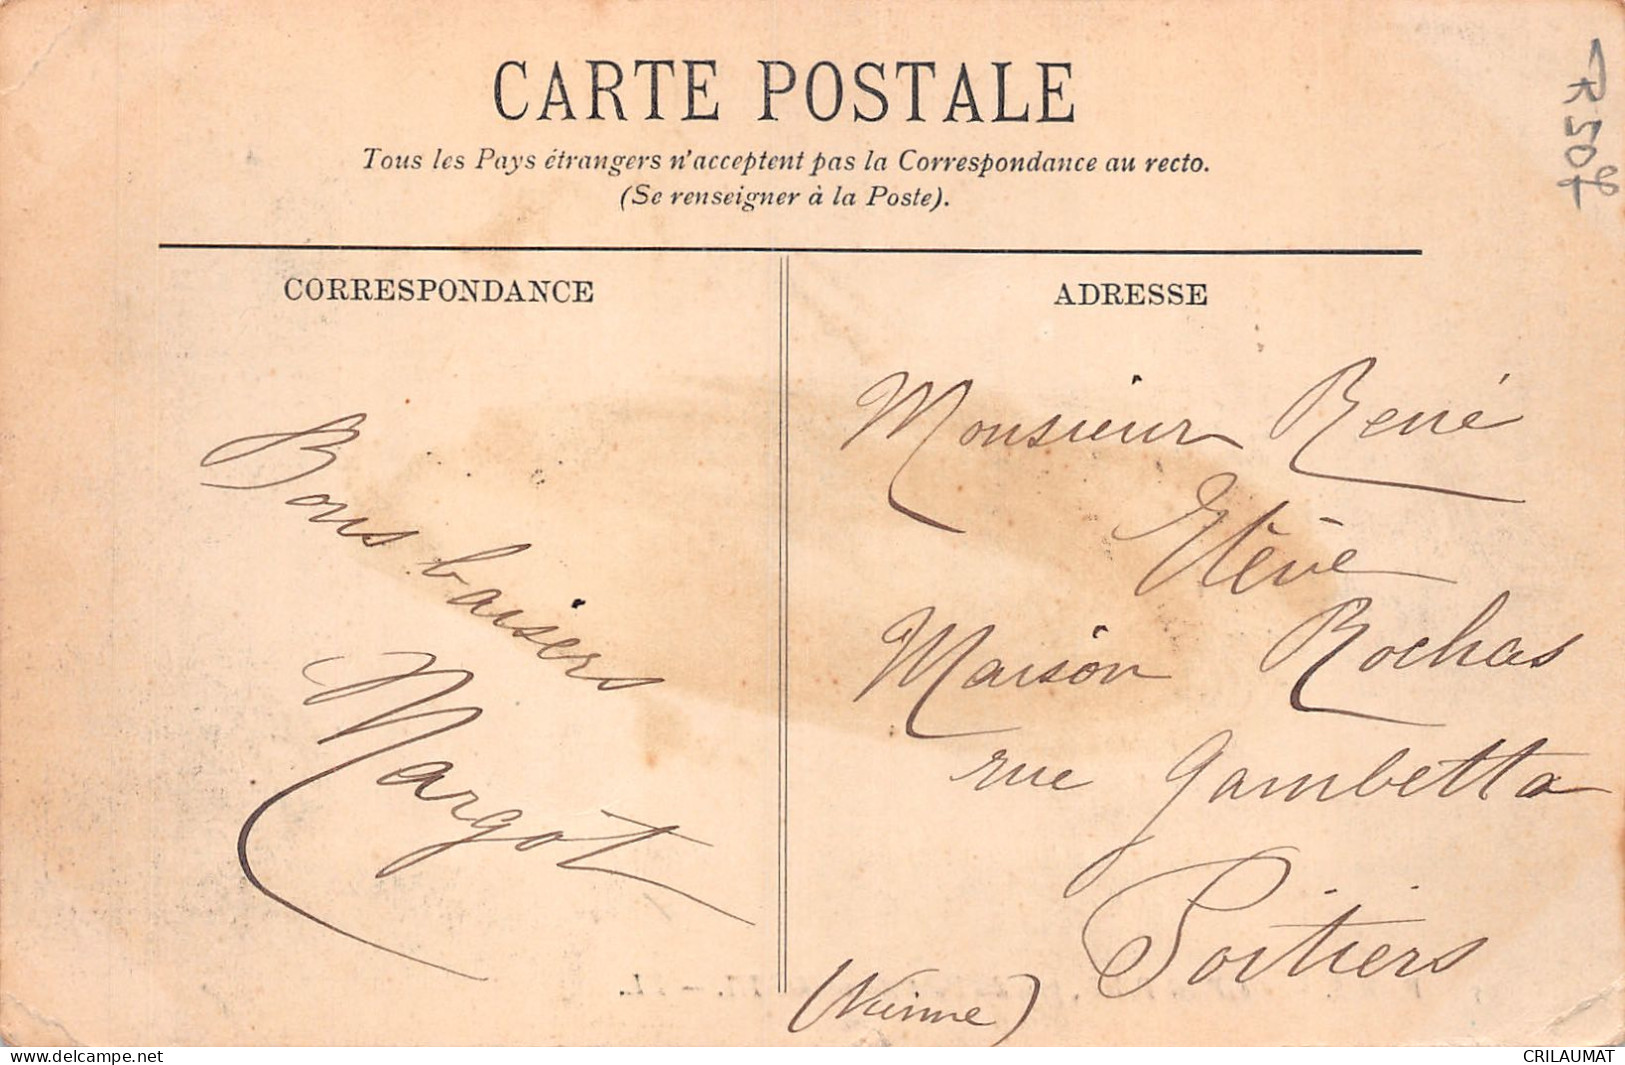 CARTE POSTALE
Tous les Pays étrangers n'acceptent pas la Correspondance au recto.
(Se renseigner à la Poste).
CORRESPONDANCE
Bons baisers
Margot
ADRESSE
Monsieur René
Etève
Maison Rochas
rue Gambetta
Poitiers
(Vienne)
www.delcampe.net
CRILAUMAT